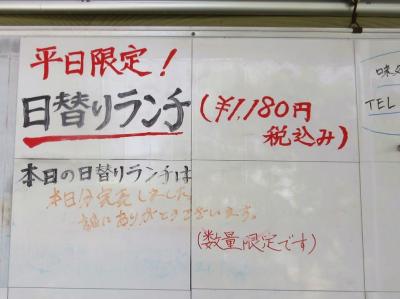 平日限定!
日替りランチ
(¥1,180円
税込み)
本日の日替りランチは
本日分完売しました
誠にありがとうございます。
(数量限定です)
TEL